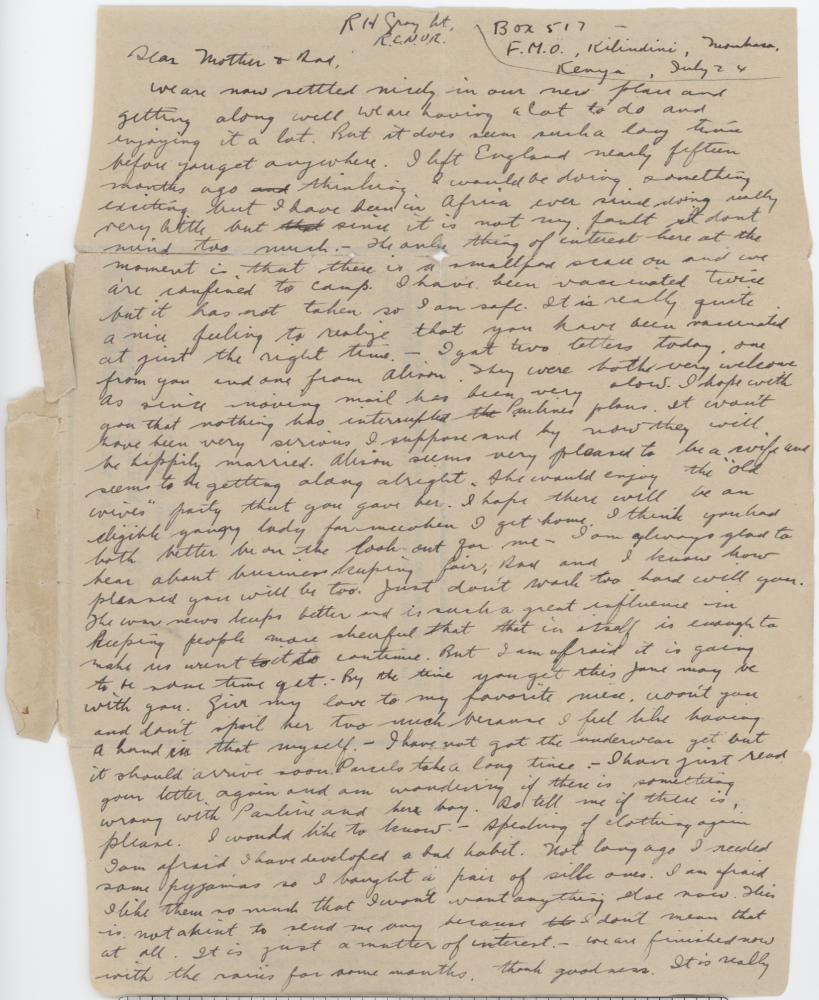 R H Gray Lt,
R.C.N.V.R.
Box 517 -
F.M.O., Kilindini, Mombasa,
Kenya, July 24
Dear Mother & Dad,
We are now settled nicely in our new place and
getting along well. We are having a lot to do and
enjoying it a lot. But it does seem such a long time
before you get anywhere. I left England nearly fifteen
months ago and thinking I would be doing something
exciting but I have been in Africa ever since doing really
very little but that since it is not my fault I dont
mind too much. - The only thing of interest here at the
moment is that there is a smallpox scare on and we
are confined to camp. I have been vaccinated twice
but it has not taken so I am safe. It is really quite
a nice feeling to realize that you have been vaccinated
at just the right time. - I got two letters today, one
from you and one from Alison. They were both very welcome
as since moving mail has been very slow. I hope with
you that nothing has interrupted the Paulines plans. It won't
have been very serious I suppose and by now they will
be happily married. Alison seems very pleased to be a wife and
seems to be getting along alright. She would enjoy the "old
wives" party that you gave her. I hope there will be an
eligible young lady for me when I get home. I think you had
both better be on the look out for me - I am always glad to
hear about business keeping fair, Dad and I know how
pleased you will be too. Just don't work too hard will you.
The war news keeps better and is such a great influence in
keeping people more cheerful that that in itself is enough to
make us want to it to continue. But I am afraid it is going
to be some time yet. - By the time you get this Jane may be
with you. Give my love to my favorite niece, won't you
and don't spoil her too much because I feel like having
a hand in that myself. - I have not got the underwear yet but
it should arrive soon. Parcels take a long time. - I have just read
your letter again and am wondering if there is something
wrong with Pauline and her boy. Do tell me if there is,
please. I would like to know. - Speaking of clothing again
I am afraid I have developed a bad habit. Not long ago I needed
some pyjamas so I bought a pair of silk ones. I am afraid
I like them so much that I won't want anything else now. This
is not a hint to send me any because I don't mean that
at all. It is just a matter of interest. - We are finished now
with the rains for some months, thank goodness. It is really